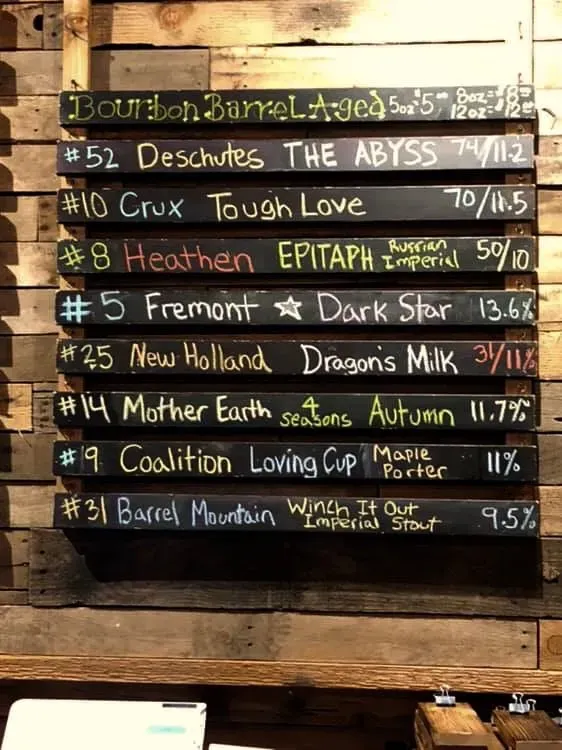 Bourbon Barrel Aged 5oz $5 8oz=$8 12oz=$12
#52 Deschutes THE ABYSS 74/11.2
#10 Crux Tough Love 70/11.5
#8 Heathen EPITAPH Russian Imperial 50/10
#5 Fremont ☆ Dark Star 13.6%
#25 New Holland Dragon's Milk 31/11%
#14 Mother Earth 4 seasons Autumn 11.7%
#9 Coalition Loving Cup Maple Porter 11%
#31 Barrel Mountain Winch It Out Imperial Stout 9.5%